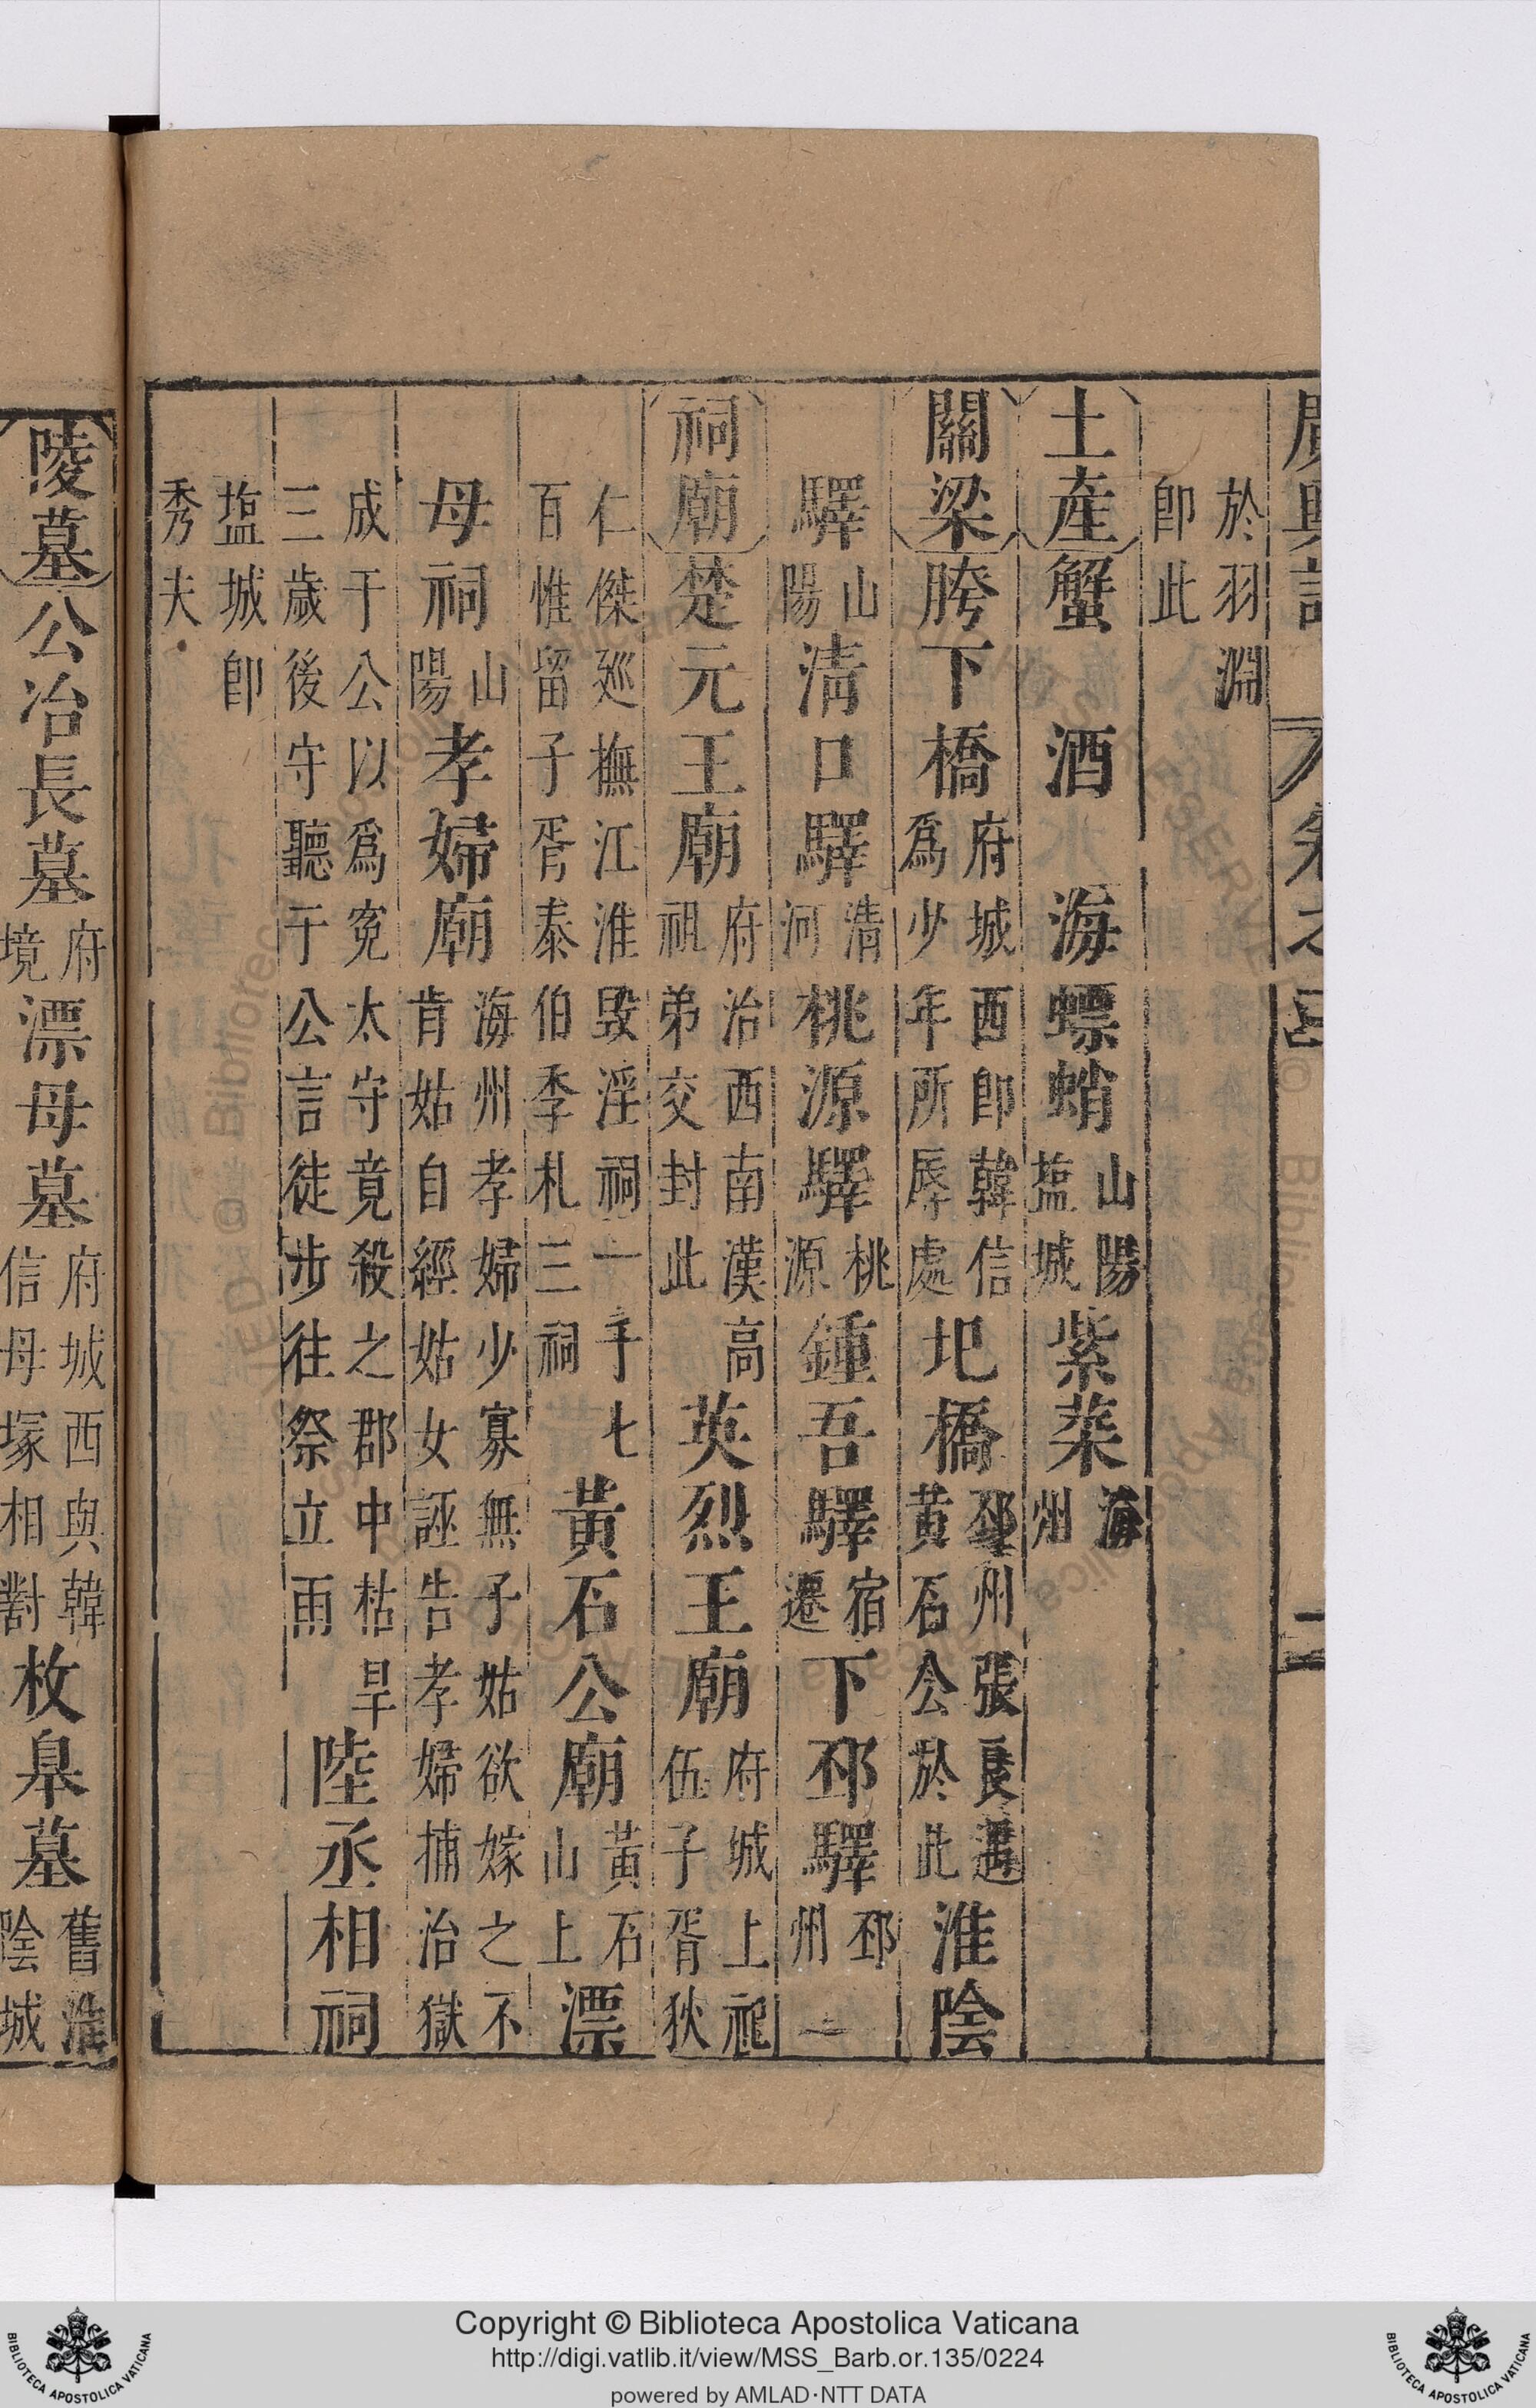 廣輿記
於羽淵
即此
土產 蟹 酒 海螵蛸 山陽
塩城 紫菜 海
州
關梁 胯下橋 府城西即韓信
爲少年所辱處 圯橋 邳州張良遇
黃石公於此 淮陰
驛 山
陽 清口驛 清
河 桃源驛 桃
源 鍾吾驛 宿
遷 下邳驛 邳
州
祠廟 楚元王廟 府治西南漢高
祖弟交封此 英烈王廟 府城上祀
伍子胥狄
仁傑廵撫江淮毀淫祠一千七
百惟留子胥泰伯季札三祠 黃石公廟 黃石
山上 漂
母祠 山
陽 孝婦廟 海州孝婦少寡無子姑欲嫁之不
肯姑自經姑女誣告孝婦捕治獄
成于公以爲寃太守竟殺之郡中枯旱
三歲後守聽于公言徒步往祭立雨 陸丞相祠
塩城即
秀夫
陵墓 公冶長墓 府
境 漂母墓 府城西與韓
信母塚相對 枚臯墓 舊淮
陰城
Copyright © Biblioteca Apostolica Vaticana
http://digi.vatlib.it/view/MSS_Barb.or.135/0224
powered by AMLAD·NTT DATA
BIBLIOTECA APOSTOLICA VATICANA
BIBLIOTECA APOSTOLICA VATICANA